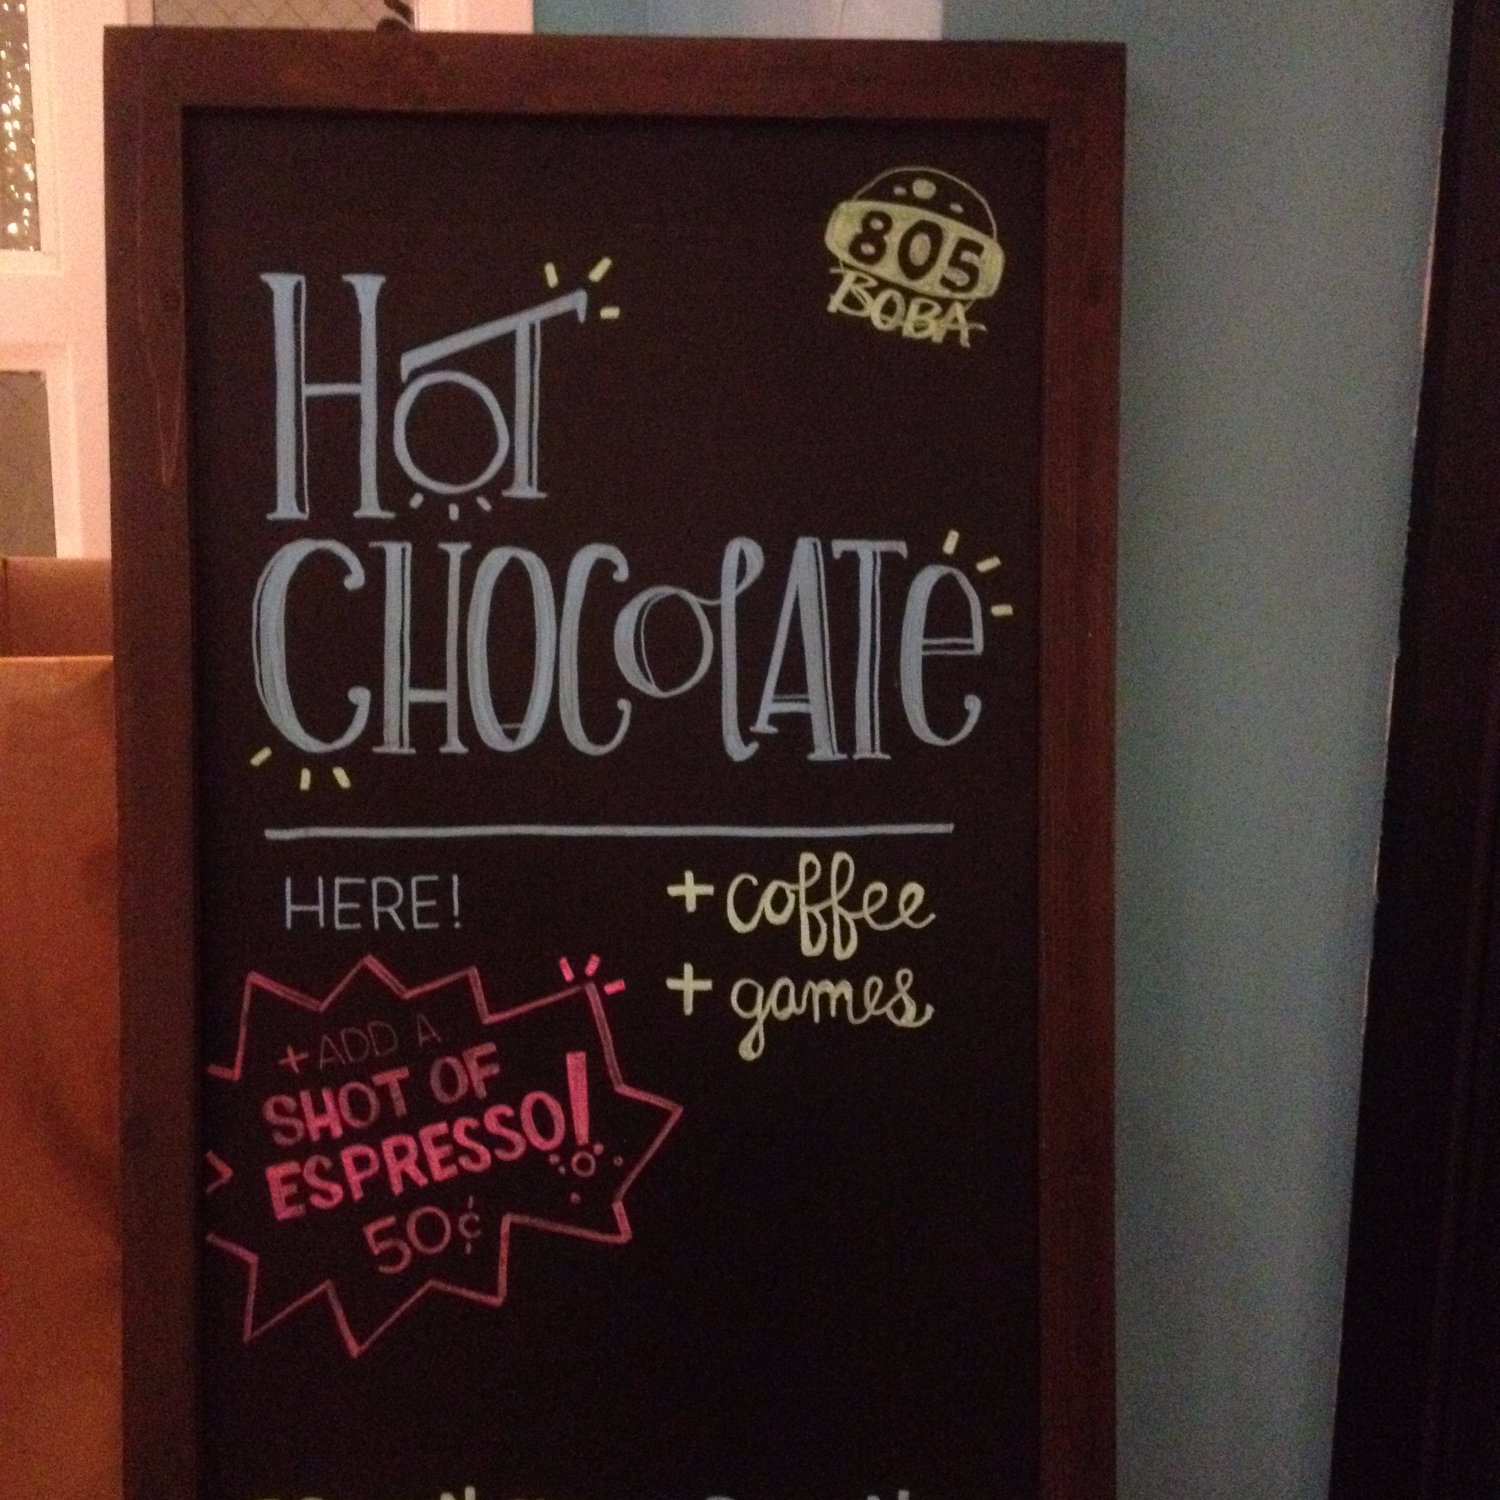 805
BOBA
HOT
CHOCOLATe
HERE!
+ coffee
+ games
+ ADD A
SHOT OF
ESPRESSO!
50¢